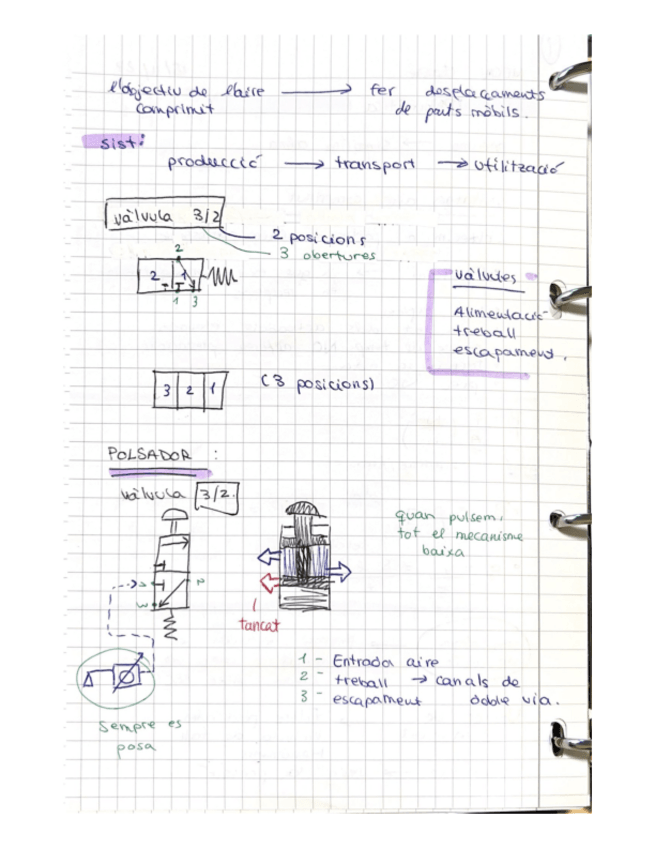 l'objectiu de l'aire → fer desplaçaments
comprimit de parts mòbils.
sist:
producció → transport → utilització
vàlvula 3/2
2 posicions
3 obertures
2
2 1
1 3
vàlvules
Alimentació
treball
escapament.
3 2 1 (3 posicions)
POLSADOR :
vàlvula 3/2
quan pulsem,
tot el mecanisme
baixa
tancat
1 - Entrada aire
2 - treball → canals de
3 - escapament doble via.
Sempre es
posa